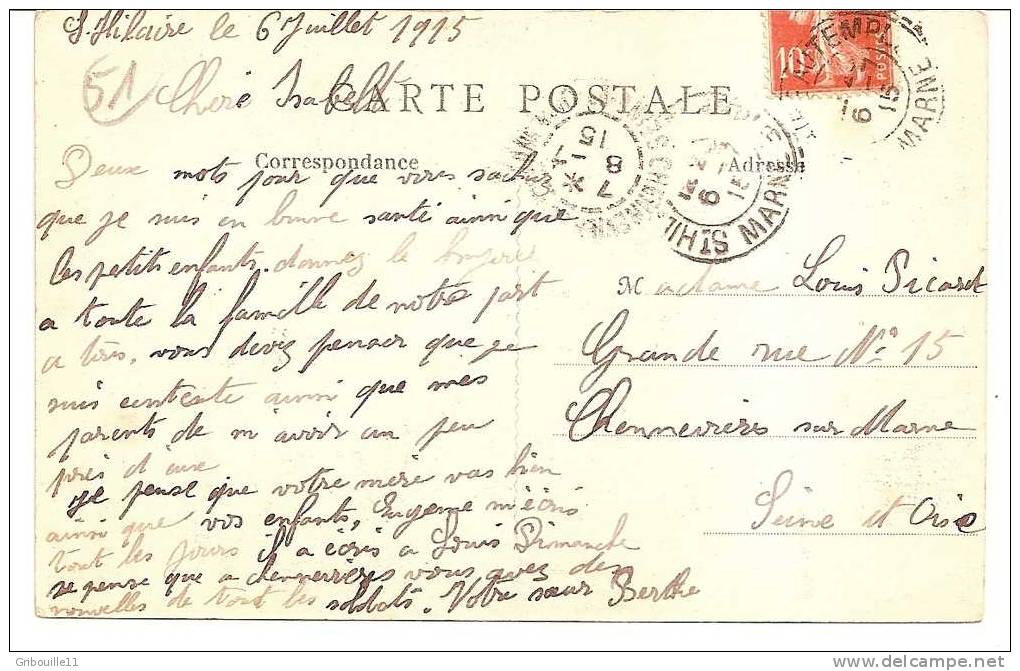 St Hilaire le 6 Juillet 1915
51
Chère Isabelle
CARTE POSTALE
Correspondance
Adresse
10
POSTES
MARNE
15
ST HIL
MARNE
7 8 15
Deux mots pour que vous sachiez
que je suis en bonne santé ainsi que
les petits enfants, donnez le bonjour
a toute la famille de notre part
a tous, vous devez penser que je
suis contente ainsi que mes
parents de m'avoir un peu
près d'eux
Je pense que votre mère vas bien
ainsi que vos enfants, Eugene m'écris
tout les jours il a écris a Louis Dimanche
je pense que a chennevières vous avez des
nouvelles de tout les soldats. Votre sœur Berthe
Madame Louis Picaret
Grande rue N° 15
Chennevières sur Marne
Seine et Oise
Gribouille11
http://www.delcampe.net